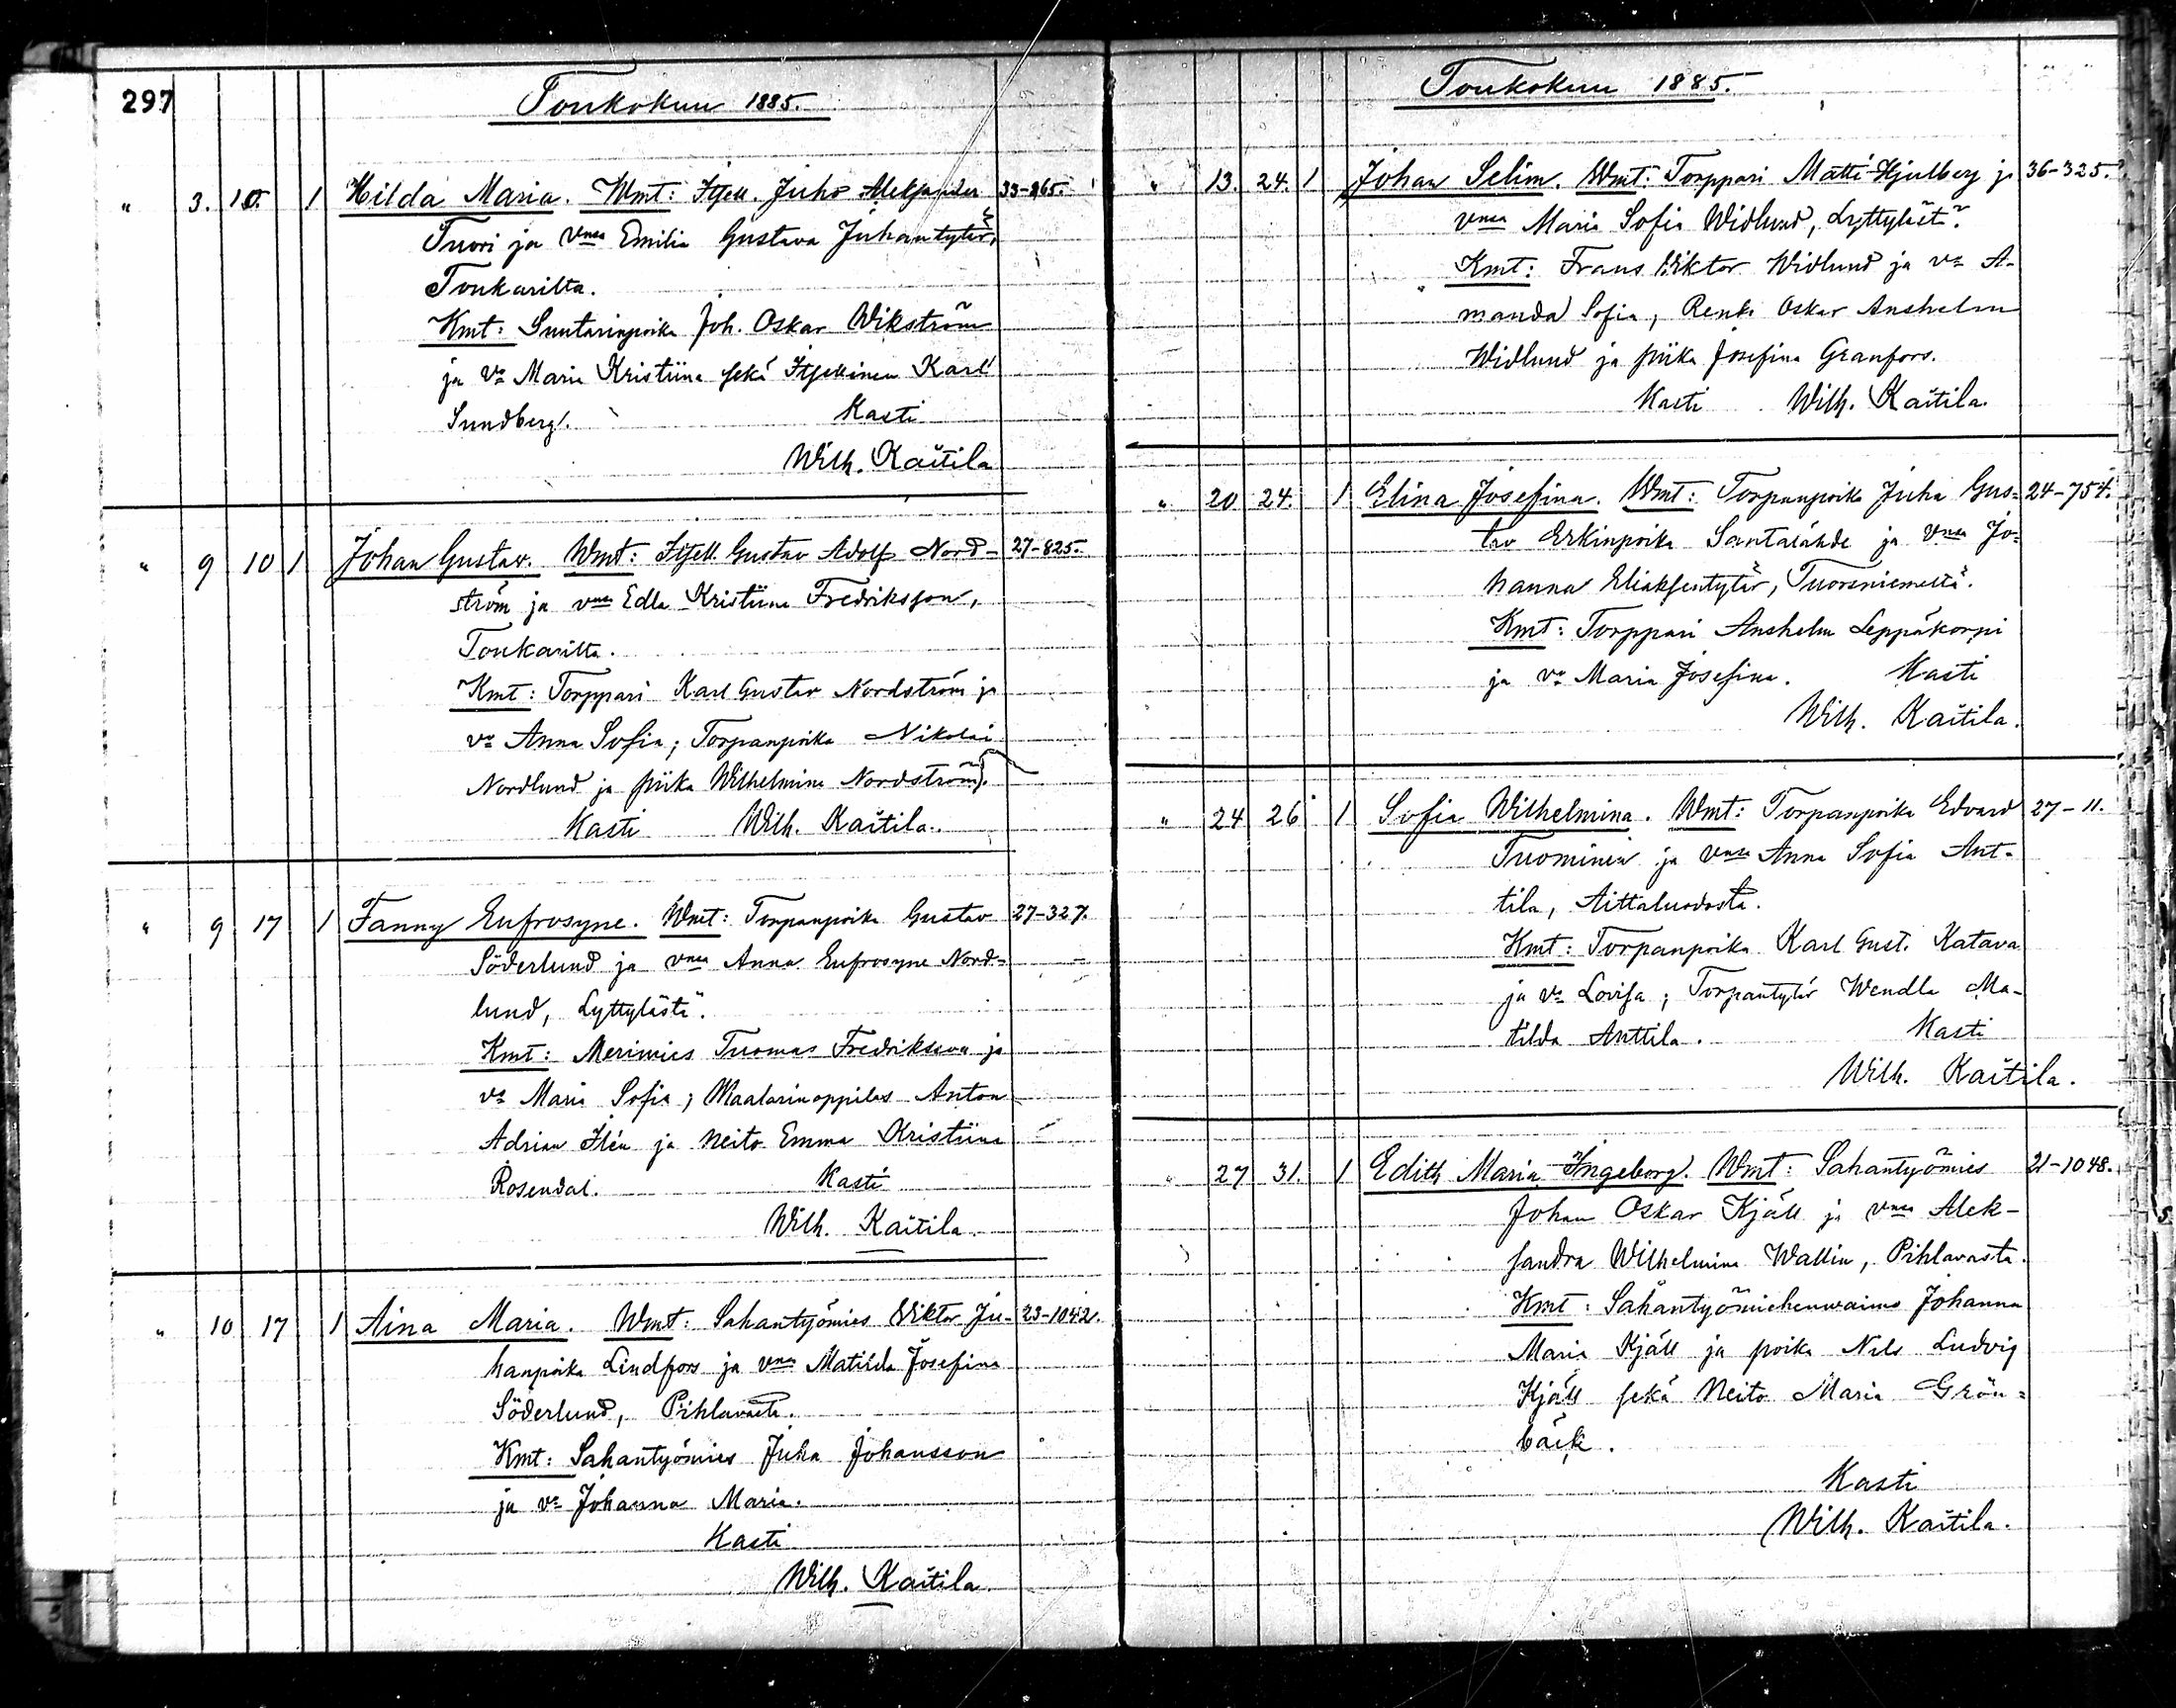 297
Toukokuu 1885.
" 3. 10. 1 Hilda Maria. Wmt: Itjell. Juho Aleksander 33-265.
Tuori ja vmsa Emilia Gustava Juhantytär,
Toukarilta.
Kmt: Suutarinpoika Joh. Oskar Wikström
ja vo Maria Kristiina sekä Itsellinen Karl
Sundberg. Kasti
Wilh. Kaitila
" 9 10 1 Johan Gustav. Wmt: Itjell. Gustav Adolf Nord- 27-825.
ström ja vmsa Edla Kristiina Fredriksson,
Toukarilta.
Kmt: Torppari Karl Gustav Nordström ja
vo Anna Sofia; Torpanpoika Nikolai
Nordlund ja piika Wilhelmina Nordström.
Kasti Wilh. Kaitila.
" 9 17 1 Fanny Eufrosyne. Wmt: Torpanpoika Gustav 27-327.
Söderlund ja vmsa Anna Eufrosyne Nord-
lund, Lyttylästä.
Kmt: Merimies Tuomas Fredriksson ja
vo Maria Sofia; Maalarinoppilas Anton
Adrian Ilén ja Neito Emma Kristiina
Rosendal. Kasti
Wilh. Kaitila.
" 10 17 1 Aina Maria. Wmt: Sahantyömies Viktor Ju- 23-1042.
hanpoika Lindfors ja vmsa Matilda Josefina
Söderlund, Pihlavasta.
Kmt: Sahantyömies Juha Johansson
ja vo Johanna Maria.
Kasti
Wilh. Kaitila.
Toukokuu 1885.
" 13. 24. 1 Johan Selim. Wmt: Torppari Matti Hjulberg ja 36-325.
vmsa Maria Sofia Widlund, Lyttylästä.
Kmt: Frans Viktor Widlund ja vo A-
manda Sofia, Renki Oskar Anshelm
Widlund ja piika Josefina Granfors.
Kasti Wilh. Kaitila.
" 20 24. 1 Elina Josefina. Wmt: Torpanpoika Juha Gus- 24-754.
tav Erkinpoika Santalahde ja vmsa Jo-
hanna Eliaksentytär, Tuorsniemeltä.
Kmt: Torppari Anshelm Leppäkorpi
ja vo Maria Josefina. Kasti
Wilh. Kaitila.
" 24 26 1 Sofia Wilhelmina. Wmt: Torpanpoika Edvard 27-11.
Tuominen ja vmsa Anna Sofia Ant-
tila, Aittaluodosta.
Kmt: Torpanpoika Karl Gust. Katava
ja vo Lovisa; Torpantytär Wendla Ma-
tilda Anttila. Kasti
Wilh. Kaitila.
" 27 31. 1 Edith Maria Ingeborg. Wmt: Sahantyömies 21-1048.
Johan Oskar Kjäll ja vmsa Alek-
sandra Wilhelmina Wallin, Pihlavasta.
Kmt: Sahantyömiehenwaimo Johanna
Maria Kjäll ja poika Nils Ludvig
Kjäll sekä Neito Maria Grön-
bäck.
Kasti
Wilh. Kaitila.